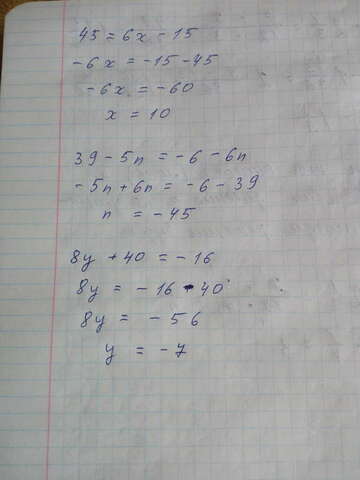 45 = 6x - 15
-6x = -15 - 45
-6x = -60
x = 10
39 - 5n = -6 - 6n
-5n + 6n = -6 - 39
n = -45
8y + 40 = -16
8y = -16 - 40
8y = -56
y = -7